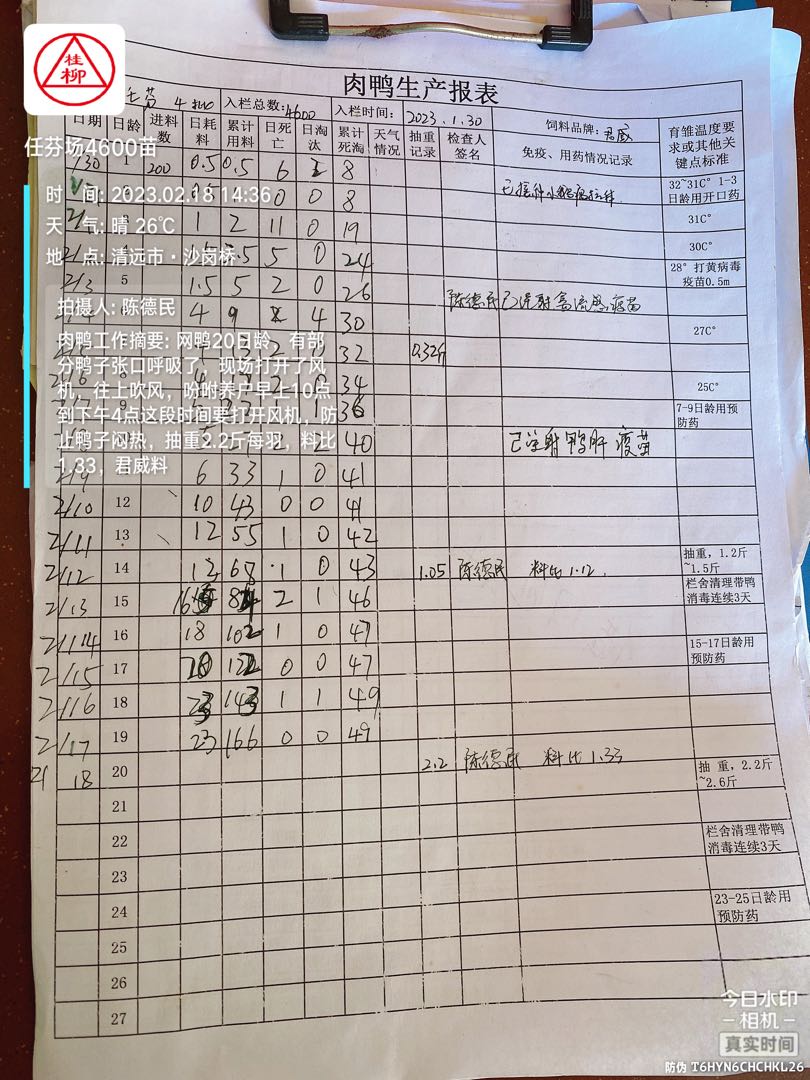 肉鸭生产报表
桂
柳
任芬场4600苗
时 间: 2023.02.18 14:36
天 气: 晴 26℃
地 点: 清远市·沙岗桥
拍摄人: 陈德民
肉鸭工作摘要: 网鸭20日龄，有部
分鸭子张口呼吸了，现场打开了风
机，往上吹风，吩咐养户早上10点
到下午4点这段时间要打开风机，防
止鸭子闷热，抽重2.2斤每羽，料比
1.33，君威料
入栏总数: 4600 入栏时间: 2023.1.30 饲料品牌: 君威
日期 日龄 进料数 日耗料 累计用料 日死亡 日淘汰 累计死淘 天气情况 抽重记录 检查人签名 免疫、用药情况记录 育雏温度要求或其他关键点标准
1/30 1 200 0.5 0.5 6 2 8 32~31C° 1-3日龄用开口药
0 0 8
1 2 11 0 19 31C°
5 0 24 30C°
2/3 5 1.5 5 2 0 26 28° 打黄病毒疫苗0.5m
陈德民已注射禽流感疫苗
4 9 4 30 27C°
2 0 32 0.32斤
0 34 25C°
1 36 7-9日龄用预防药
2 40 已注射鸭肝疫苗
2/9 6 33 1 0 41
2/10 12 10 43 0 0 41
2/11 13 12 55 1 0 42
2/12 14 12 67 1 0 43 1.05 陈德民 料比1.12. 抽重，1.2斤~1.5斤
2/13 15 16 2 1 46 栏舍清理带鸭消毒连续3天
2/14 16 18 102 1 0 47 15-17日龄用预防药
2/15 17 122 0 0 47
2/16 18 143 1 1 49
2/17 19 23 166 0 0 49
2/18 20 2.2 陈德民 料比1.33 抽重，2.2斤~2.6斤
21
22 栏舍清理带鸭消毒连续3天
23
24 23-25日龄用预防药
25
26
27
今日水印
相机
真实时间
防伪 T6HYN6CHCHKL26